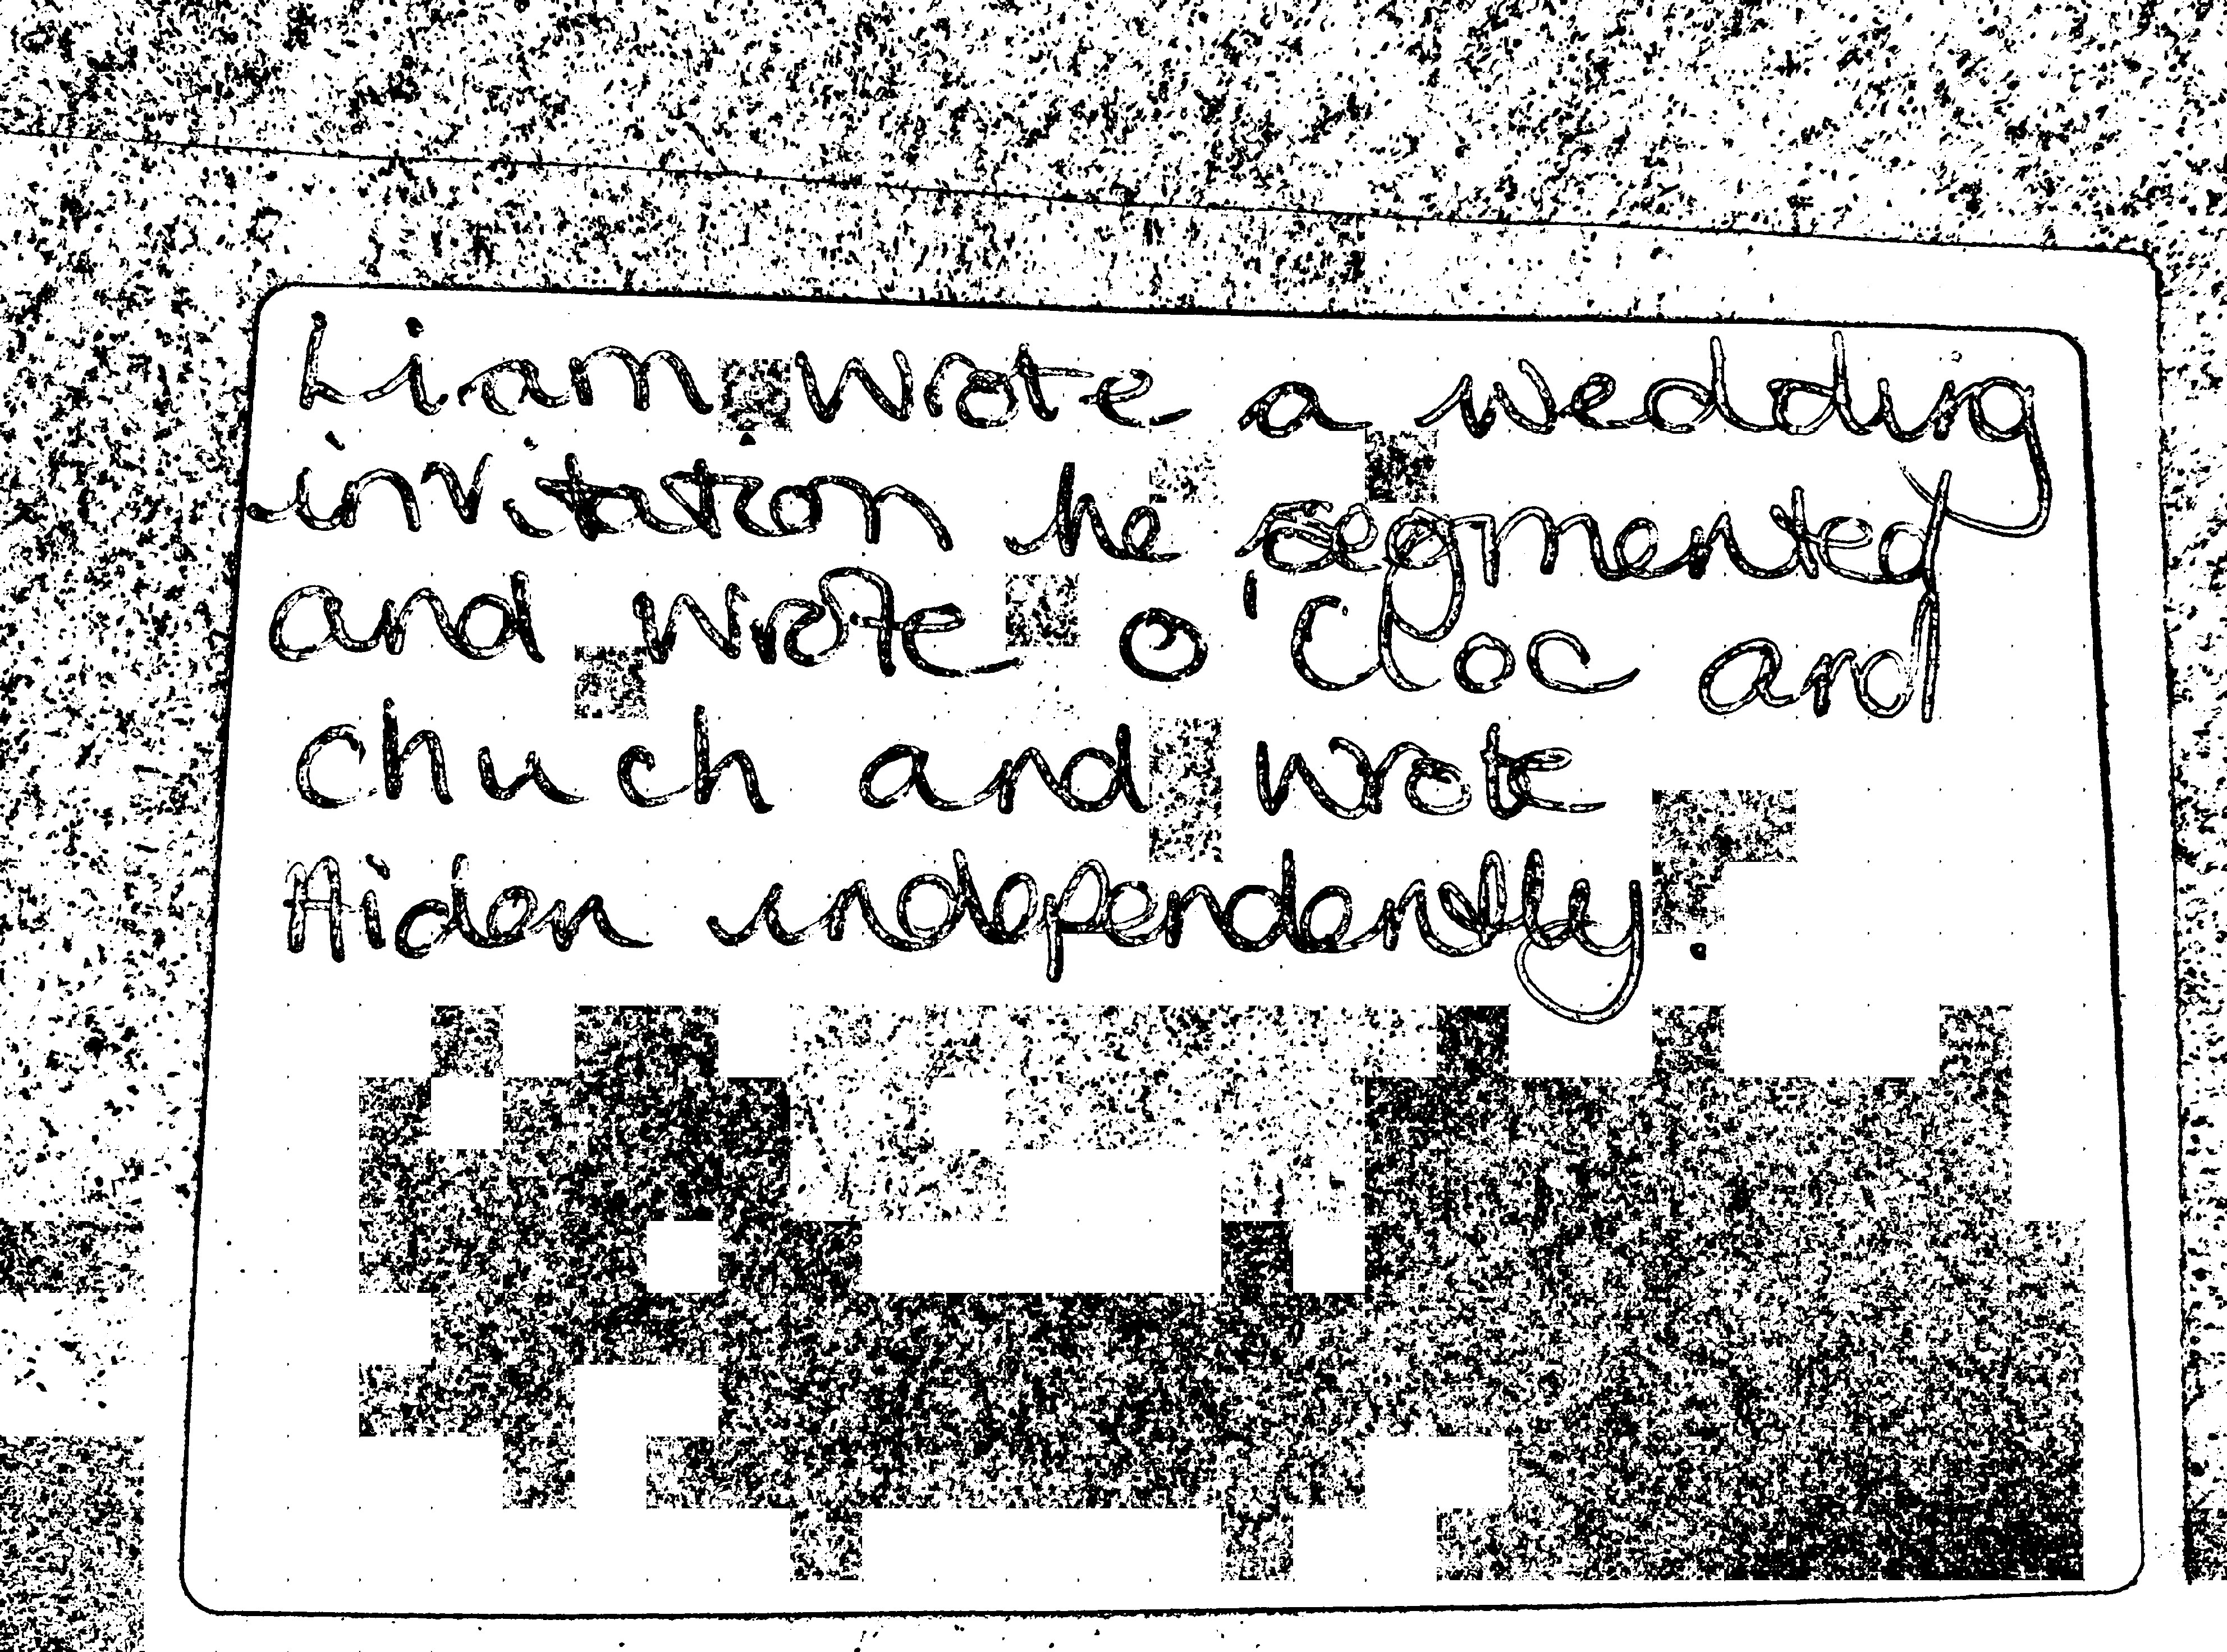 Liam wrote a wedding
invitation he segmented
and wrote o'cloc and
chuch and wrote
Aiden independently.